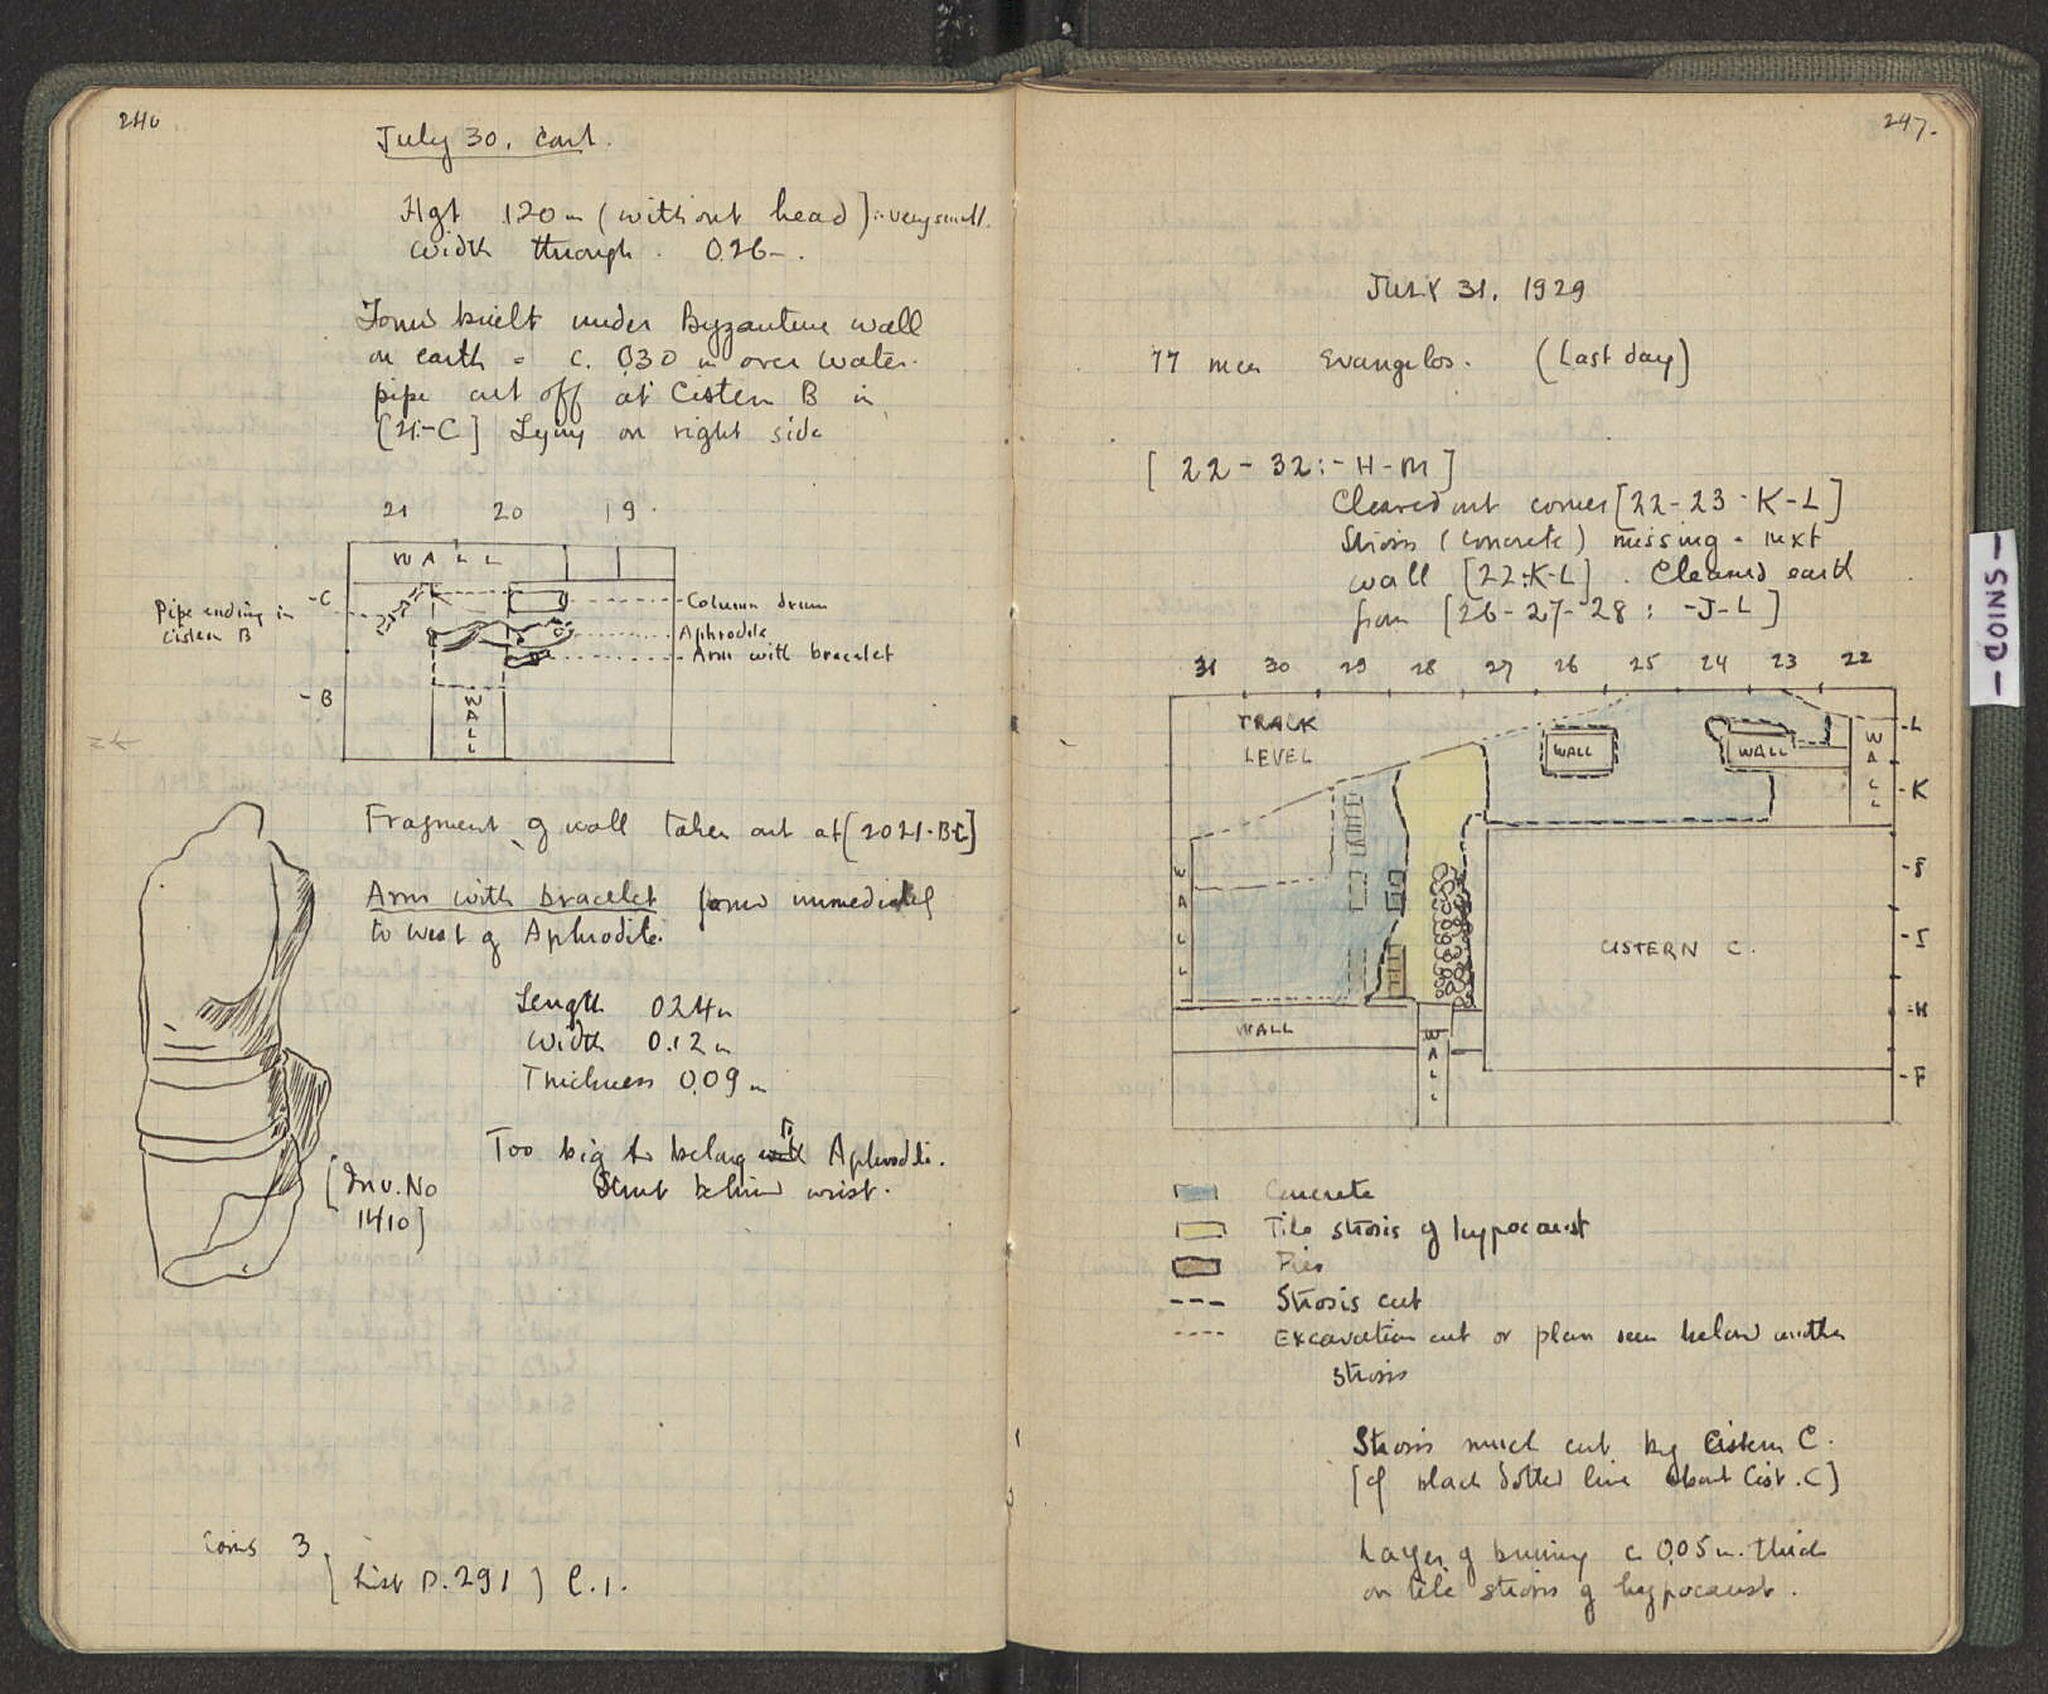 246
July 30. Cont.
Hgt 1.20 m (without head) very small.
Width through . 0.26 -.
Found built under Byzantine wall
on earth = c. 0.30 m over water-
pipe cut off at Cistern B in
[21:-C] Lying on right side
21 20 19.
WALL
-C
Pipe ending in
Cistern B
Column drum
Aphrodite
Arm with bracelet
-B
WALL
Fragment of wall taken out at [20 21-B-C]
Arm with bracelet found immediately
to west of Aphrodite.
Length 0.24 m
Width 0.12 m
Thickness 0.09 m
Too big to belong with to Aphrodite.
Strut behind wrist.
[Inv. No
1410]
Coins 3
[List P. 291] C.1.
247.
JULY 31, 1929
77 men Evangelos. (Last day)
[22-32:-H-M]
Cleared out corner [22-23-K-L]
Strosis (concrete) missing - next
wall [22:K-L]. Cleared earth
from [26-27-28: -J-L]
31 30 29 28 27 26 25 24 23 22
TRACK
LEVEL
WALL
WALL
WALL
-L
-K
-J
-I
-H
-F
WALL
CISTERN C.
WALL
WALL
Concrete
Tile strosis of hypocaust
Pier
Strosis cut
Excavation cut or plan seen below another
strosis
Strosis much cut by Cistern C.
[cf black dotted line about Cist. C]
Layer of burning c 0.05 m. thick
on tile strosis of hypocaust.
- COINS -